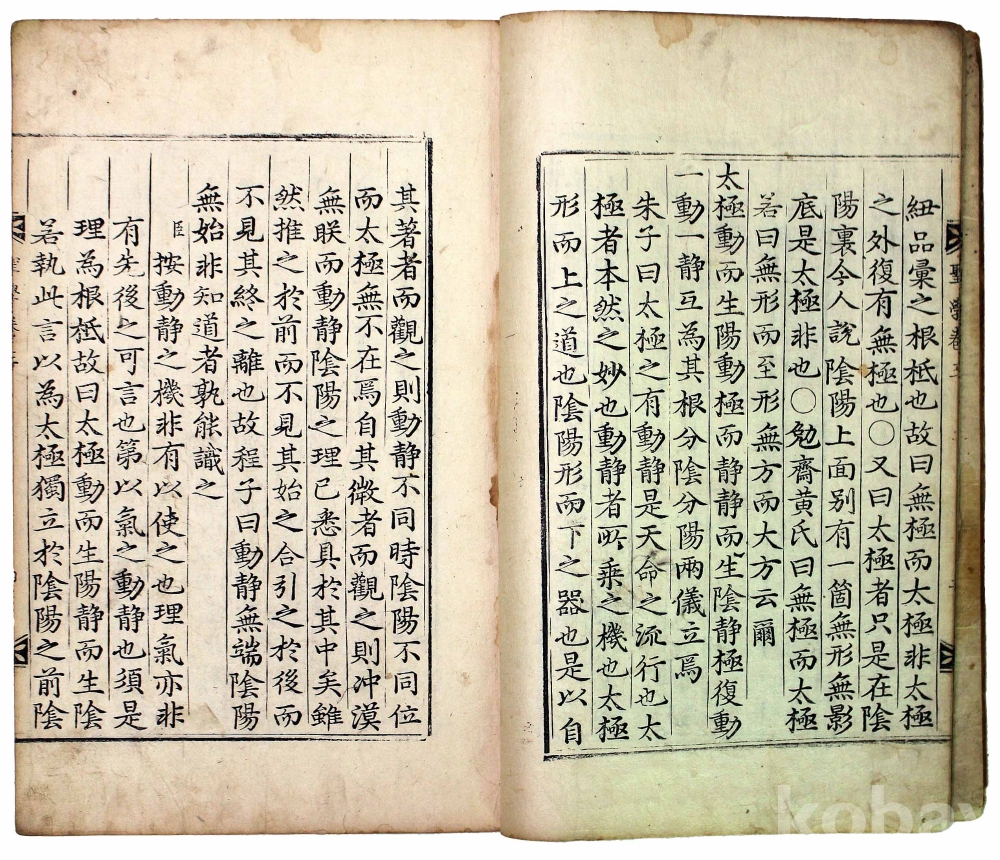 紐品彙之根柢也故曰無極而太極非太極
之外復有無極也○又曰太極者只是在陰
陽裏今人說陰陽上面別有一箇無形無影
底是太極非也○勉齋黃氏曰無極而太極
若曰無形而至形無方而大方云爾
太極動而生陽動極而靜靜而生陰靜極復動
一動一靜互為其根分陰分陽兩儀立焉
朱子曰太極之有動靜是天命之流行也太
極者本然之妙也動靜者所乘之機也太極
形而上之道也陰陽形而下之器也是以自
其著者而觀之則動靜不同時陰陽不同位
而太極無不在焉自其微者而觀之則冲漠
無朕而動靜陰陽之理已悉具於其中矣雖
然推之於前而不見其始之合引之於後而
不見其終之離也故程子曰動靜無端陰陽
無始非知道者孰能識之
臣按動靜之機非有以使之也理氣亦非
有先後之可言也第以氣之動靜也須是
理為根柢故曰太極動而生陽靜而生陰
若執此言以為太極獨立於陰陽之前陰
聖學卷
kobay